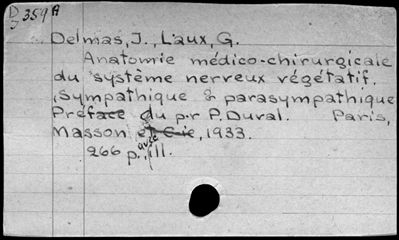 D 359 A
J
Delmas, J., Laux, G.
Anatomie médico-chirurgicale
du système nerveux végétatif.
(Sympathique & parasympathique
Préface du pr P. Duval. Paris,
Masson et Cie, 1933.
266 p. avec ill.